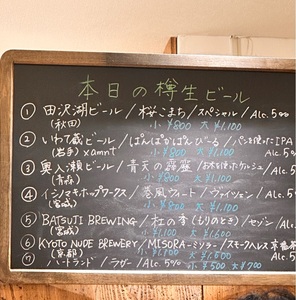 本日の樽生ビール
① 田沢湖ビール/桜こまち/スペシャル/Alc.5%
(秋田) 小¥800 大¥1,100
② いわて蔵ビール/ぱんぱかぱんびーる/パンを使ったIPA
(岩手)×amnt 小¥800 大¥1,100
③ 奥入瀬ビール/青天の霹靂/お米を使ったケルシュ
(青森) 小¥800 大¥1,100
④ イシノマキホップワークス/巻風ウィート/ヴァイツェン/Alc.
(宮城) 小¥800 大¥1,100
⑤ BATSUJI BREWING/杜の李(もりのとき)/セゾン/Alc.
(宮城) 小 大
⑥ KYOTO NUDE BREWERY/MISORA-ミソラ-/スモークヘレス
(京都) 大
⑦ ートランド/ラガー/Alc.5% 小¥500 大¥700